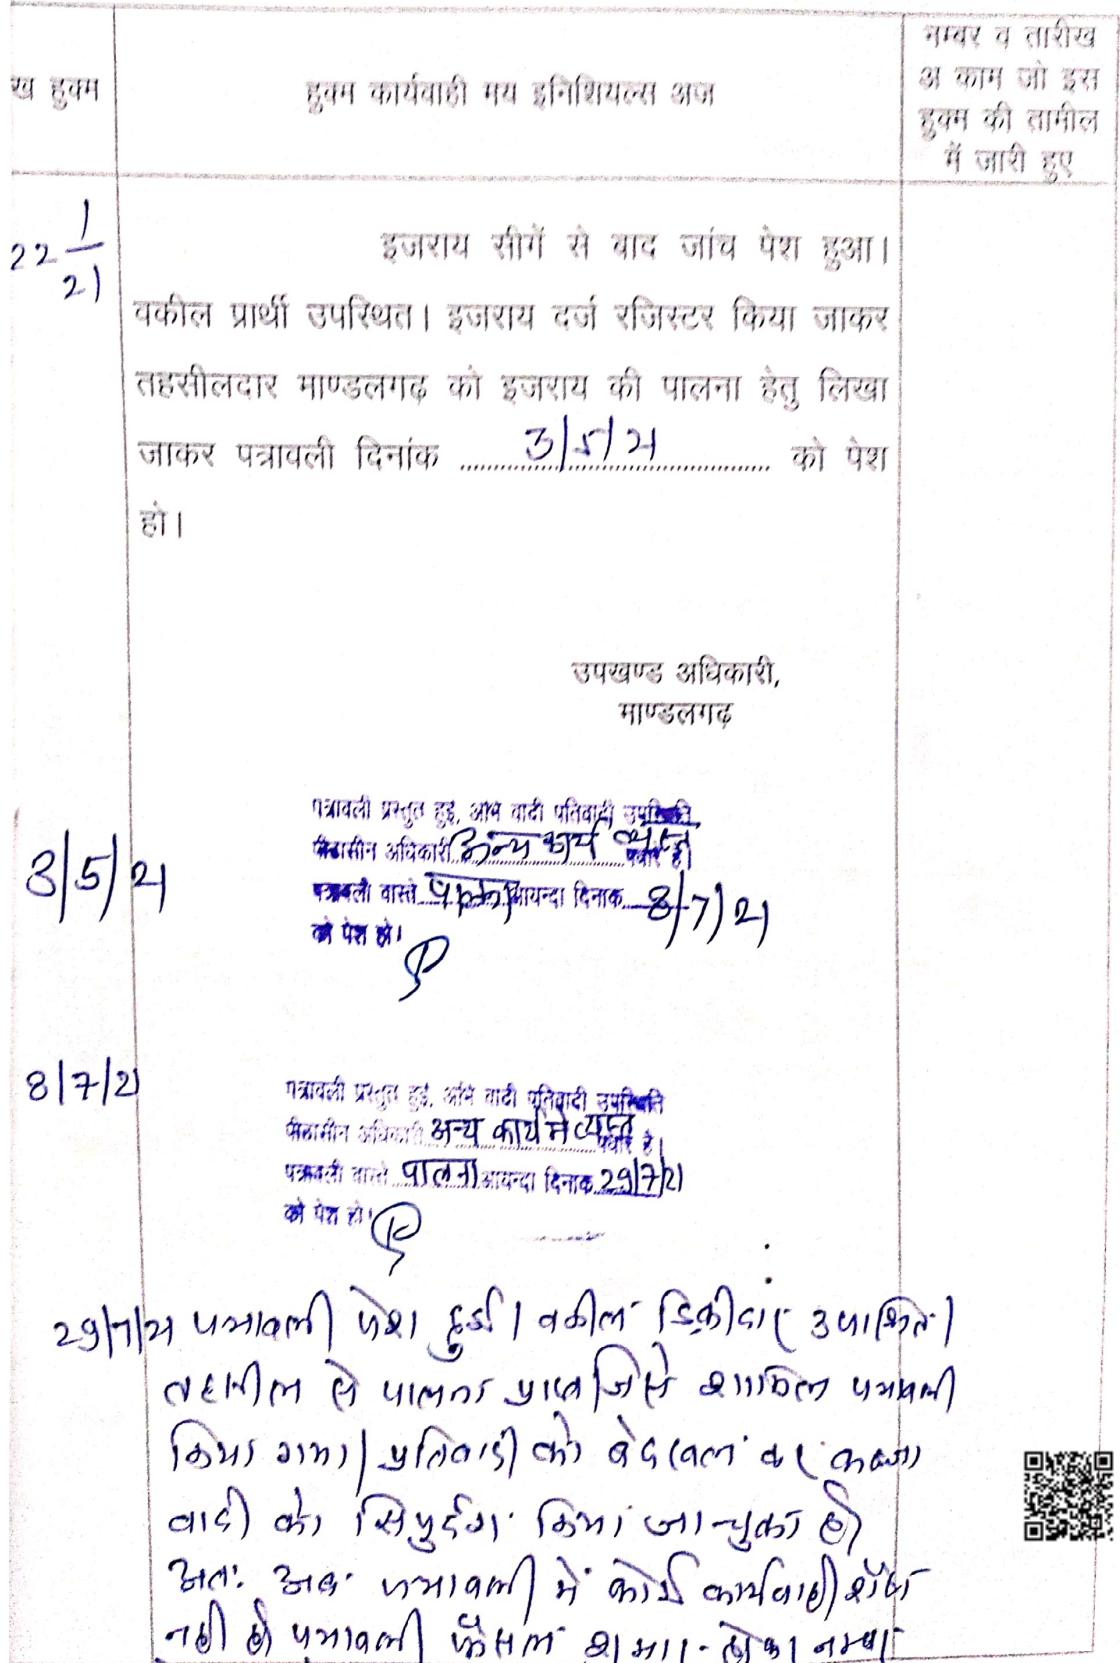 ख हुक्म
हुक्म कार्यवाही मय इनिशियल्स अज
नम्बर व तारीख
अ काम जो इस
हुक्म की तामील
में जारी हुए
22 1/21
इजराय सीगें से बाद जांच पेश हुआ।
वकील प्रार्थी उपस्थित। इजराय दर्ज रजिस्टर किया जाकर
तहसीलदार माण्डलगढ़ को इजराय की पालना हेतु लिखा
जाकर पत्रावली दिनांक 3/5/21 को पेश
हो।
उपखण्ड अधिकारी,
माण्डलगढ़
3/5/21
पत्रावली प्रस्तुत हुई, अभि वादी प्रतिवादी उपस्थिति
पीठासीन अधिकारी अन्य कार्य व्यस्त पधारे है।
पत्रावली वास्ते पालना आयन्दा दिनाक 8/7/21
को पेश हो।
8/7/21
पत्रावली प्रस्तुत हुई, अभि वादी प्रतिवादी उपस्थिति
पीठासीन अधिकारी अन्य कार्य मे व्यस्त पधारे है।
पत्रावली वास्ते पालना आयन्दा दिनाक 29/7/21
को पेश हो।
29/7/21 पत्रावली पेश हुई। वकील डिक्रीदार उपस्थित।
तहसील से पालना प्राप्त जिसे शामिल पत्रावली
किया गया। प्रतिवादी को बेदखल कर कब्जा
वादी को सिपुर्दग किया जा चुका है।
अतः अब पत्रावली में कोई कार्यवाही शेष
नही है पत्रावली फैसल शुमार होकर नम्बर